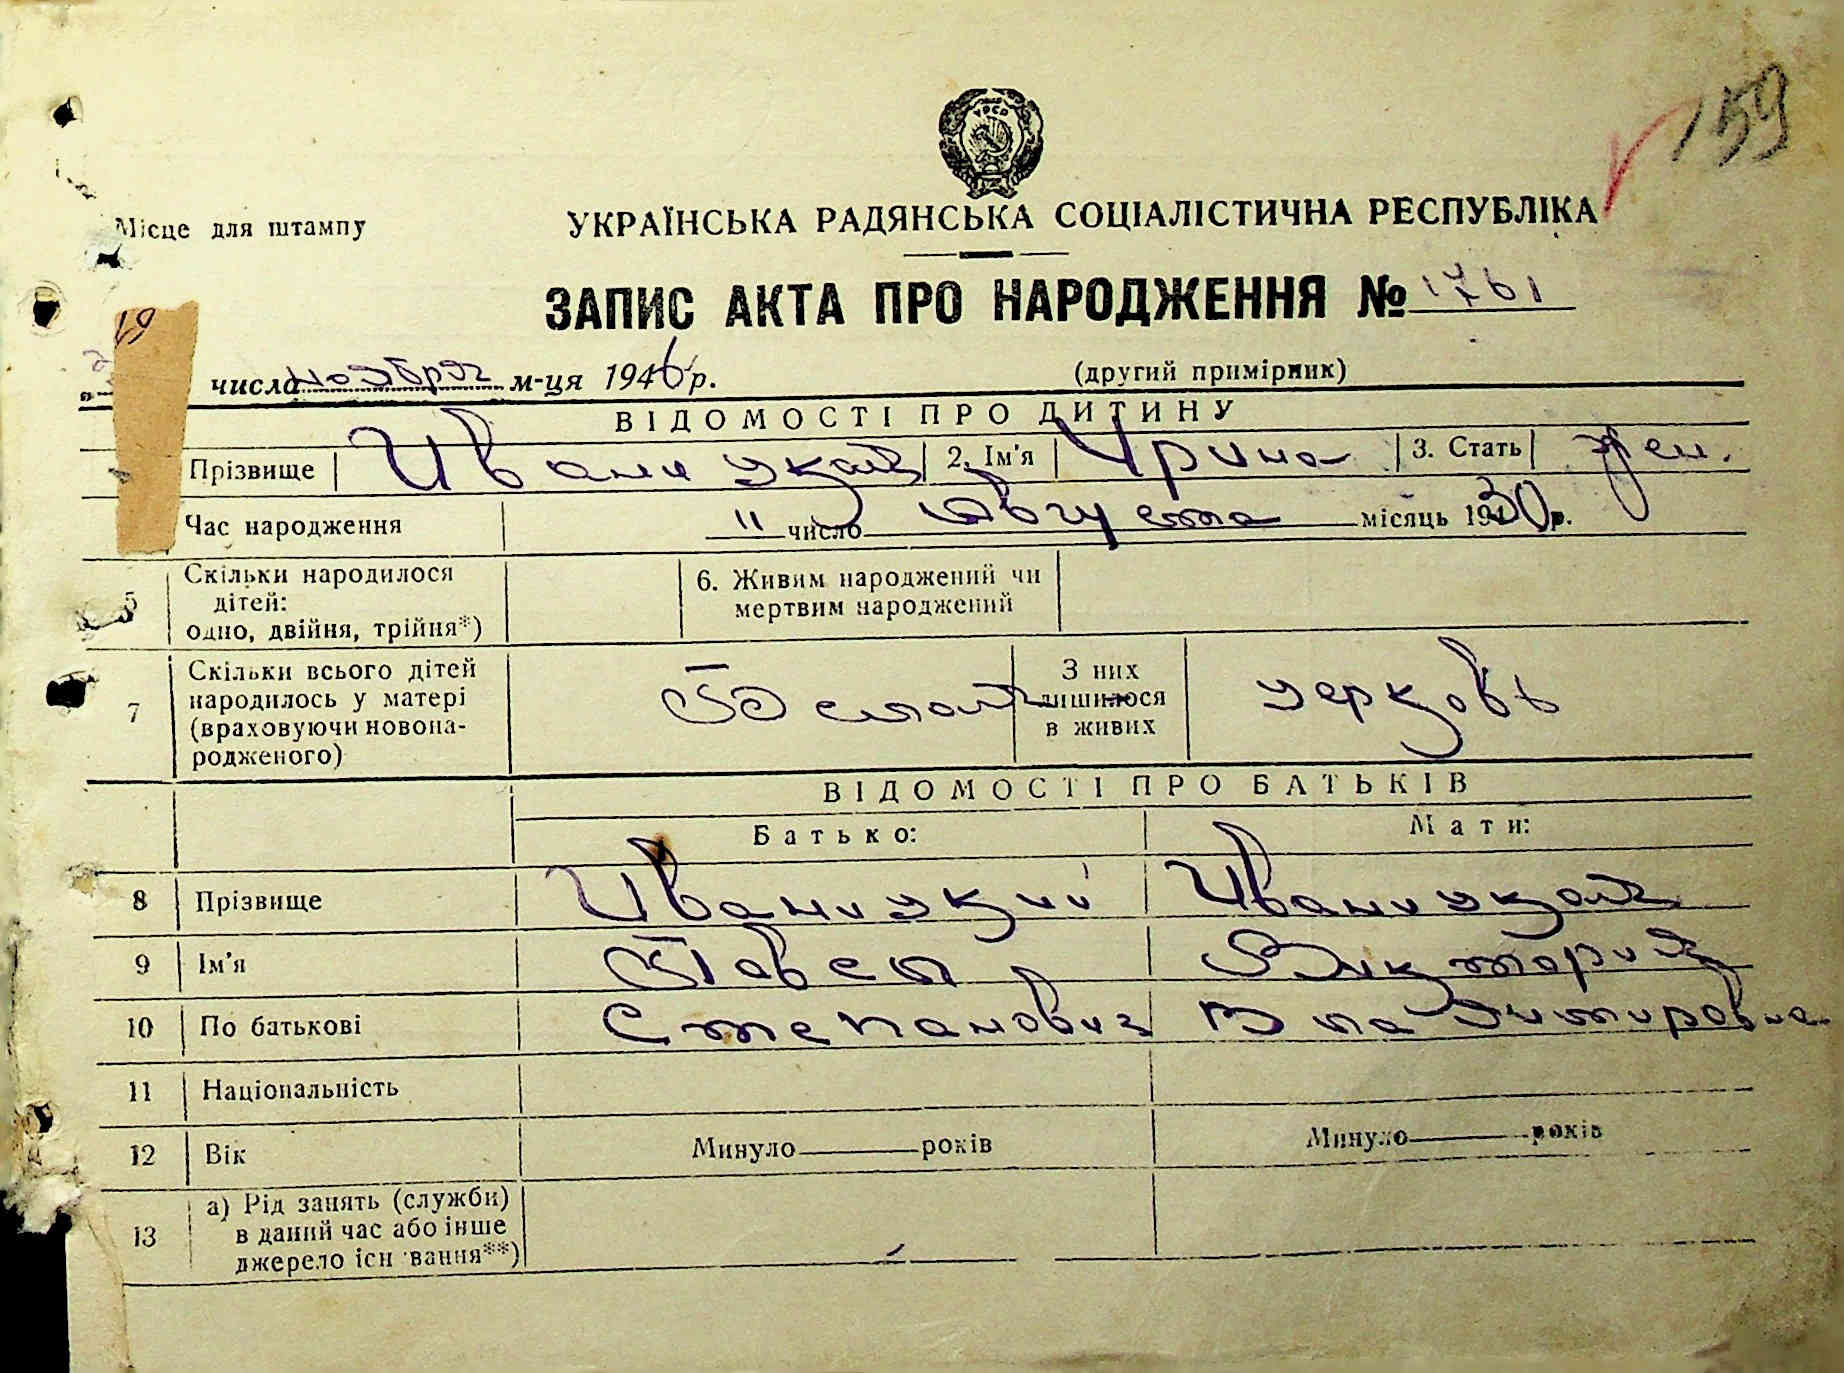 159
УРСР
Місце для штампу
УКРАЇНСЬКА РАДЯНСЬКА СОЦІАЛІСТИЧНА РЕСПУБЛІКА
ЗАПИС АКТА ПРО НАРОДЖЕННЯ № 1761
19
числа ноября м-ця 1946 р.
(другий примірник)
ВІДОМОСТІ ПРО ДИТИНУ
Прізвище Иваницкая 2. Ім'я Ирина 3. Стать жен.
Час народження 11 число Августа місяць 1930 р.
5 Скільки народилося дітей: одно, двійня, трійня*) 6. Живим народжений чи мертвим народжений
7 Скільки всього дітей народилось у матері (враховуючи новонародженого) Белая З них лишилося в живих церковь
ВІДОМОСТІ ПРО БАТЬКІВ
Батько: Мати:
8 Прізвище Иваницкий Иваницкая
9 Ім'я Павел Виктория
10 По батькові Степанович Владимировна
11 Національність
12 Вік Минуло років Минуло років
13 а) Рід занять (служби) в даний час або інше джерело існування**)